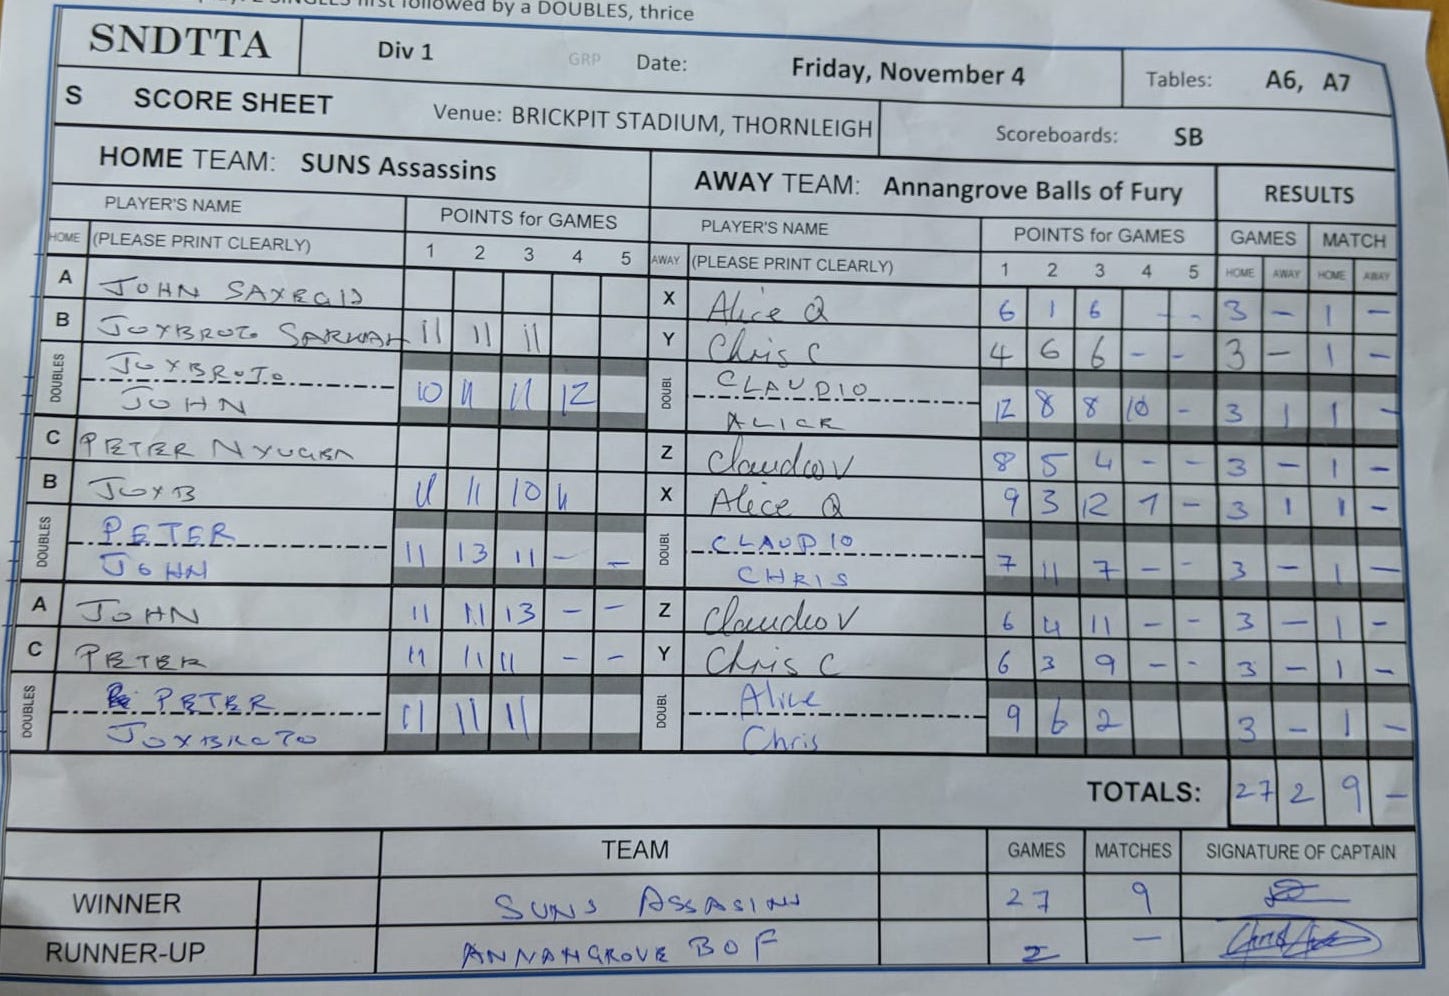 2 SINGLES first followed by a DOUBLES, thrice
SNDTTA Div 1 GRP Date: Friday, November 4 Tables: A6, A7
S SCORE SHEET Venue: BRICKPIT STADIUM, THORNLEIGH Scoreboards: SB
HOME TEAM: SUNS Assassins AWAY TEAM: Annangrove Balls of Fury RESULTS
PLAYER'S NAME POINTS for GAMES PLAYER'S NAME POINTS for GAMES GAMES MATCH
HOME (PLEASE PRINT CLEARLY) 1 2 3 4 5 AWAY (PLEASE PRINT CLEARLY) 1 2 3 4 5 HOME AWAY HOME AWAY
A JOHN X Alice Q 6 1 6 - - 3 - 1 -
B JOYBROTO SARKAR 11 11 11 Y Chris C 4 6 6 - - 3 - 1 -
DOUBLES JOYBROTO DOUBL CLAUDIO
JOHN 10 11 11 12 ALICE 12 8 8 10 - 3 1 1 -
C PETER Z Claudio V 8 5 4 - - 3 - 1 -
B JOYB 11 11 10 11 X Alice Q 9 3 12 7 - 3 1 1 -
DOUBLES PETER DOUBL CLAUDIO
JOHN 11 13 11 - - CHRIS 7 11 7 - - 3 - 1 -
A JOHN 11 11 13 - - Z Claudio V 6 4 11 - - 3 - 1 -
C PETER 11 11 11 - - Y Chris C 6 3 9 - - 3 - 1 -
DOUBLES PETER DOUBL Alice
JOYBROTO 11 11 11 Chris 9 6 2 3 - 1 -
TOTALS: 27 2 9 -
TEAM GAMES MATCHES SIGNATURE OF CAPTAIN
WINNER SUNS ASSASINS 27 9
RUNNER-UP ANNANGROVE BOF 2 -